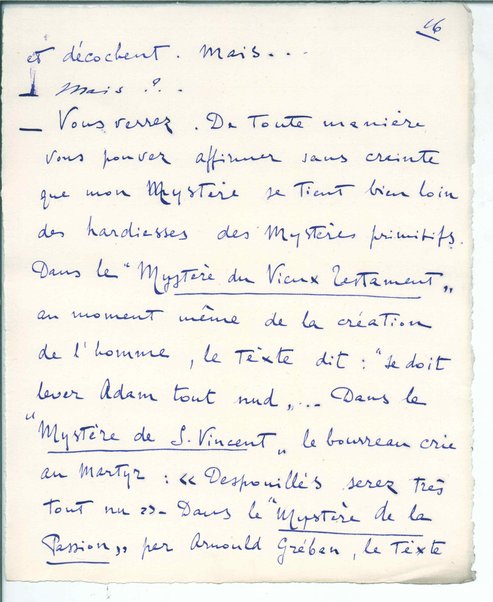 16
et décochent. Mais...
— Mais ?..
— Vous verrez. De toute manière
vous pouvez affirmer sans creinte
que mon Mystère se tient bien loin
des hardiesses des Mystères primitifs.
Dans le "Mystère du Vieux Testament„
au moment même de la création
de l'homme, le Texte dit : "se doit
lever Adam tout nud„... Dans le
"Mystère de S. Vincent„ le bourreau crie
au Martyr : « Despouillés serez très
tout nu »- Dans le "Mystère de la
Passion„ par Arnould Gréban, le Texte